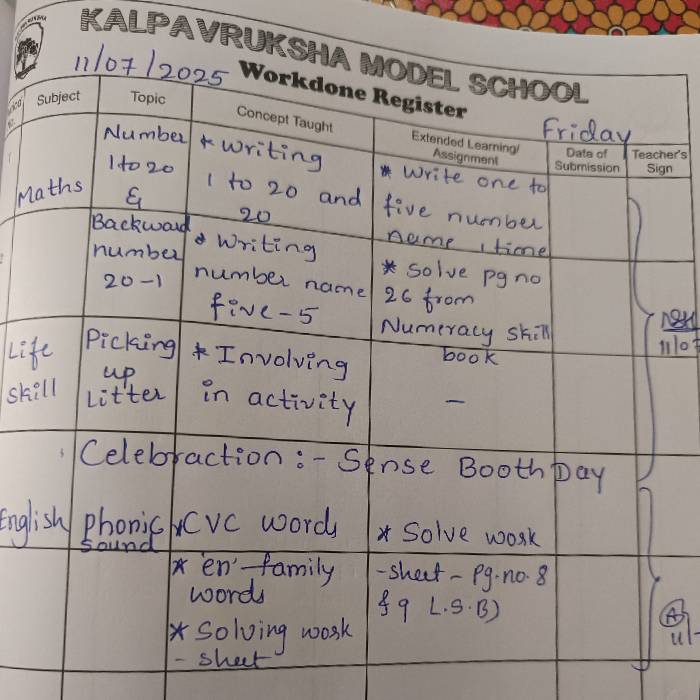 KALPAVRUKSHA MODEL SCHOOL
11/07/2025 Workdone Register
Friday
Subject Topic Concept Taught Extended Learning/ Assignment Date of Submission Teacher's Sign
Maths
Number
1 to 20
&
Backward
number
20-1
* Writing
1 to 20 and
20
* Writing
number name
five - 5
* Write one to
five number
name 1 time
* Solve pg no
26 from
Numeracy skill
book
11/07
Life
skill
Picking
up
Litter
* Involving
in activity
-
Celebraction :- Sense Booth Day
English
phonic
sound
* CVC words
* 'en' family
words
* Solving work
- sheet
* Solve work
- sheet - Pg.no. 8
& 9 L.S.B)